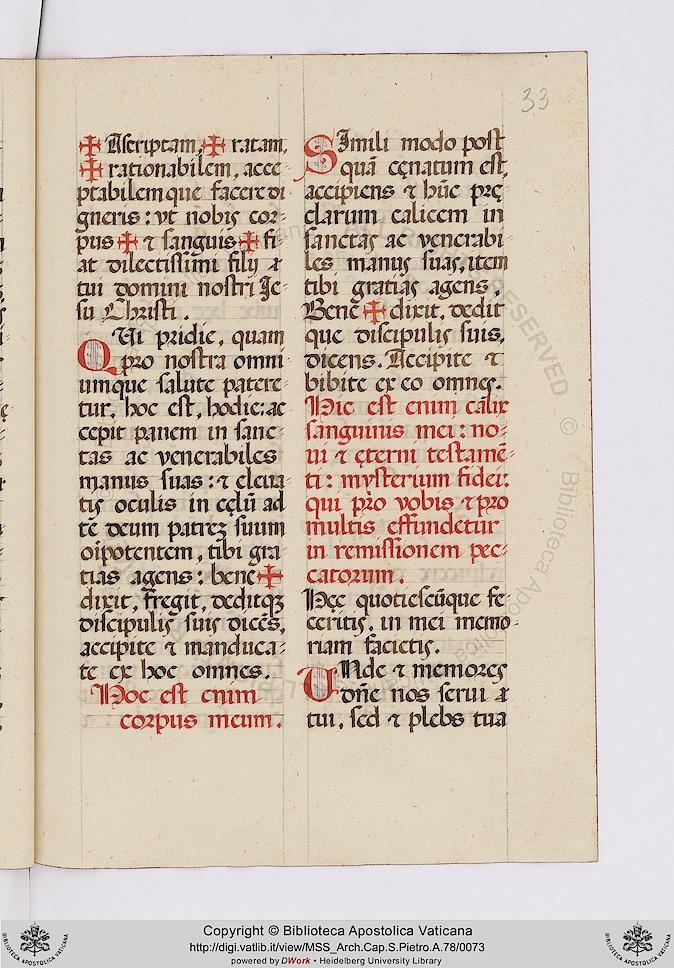 33
✠ Ascriptam, ✠ ratam,
✠ rationabilem, acce
ptabilemque facere di
gneris: vt nobis cor
pus ✠ ⁊ sanguis ✠ fi
at dilectissimi filij ⁊
tui domini nostri Ie
su Christi.
QVi pridie, quam
pro nostra omni
umque salute patere
tur, hoc est, hodie: ac
cepit panem in sanc
tas ac venerabiles
manus suas: ⁊ eleua
tis oculis in cęlū ad
tē deum patrē suum
oīpotentem, tibi gra
tias agens: bene ✠
dixit, fregit, deditqꝫ
discipulis suis dicēs,
accipite ⁊ manduca
te ex hoc omnes.
Hoc est enim
corpus meum.
SImili modo post
quā cęnatum est,
accipiens ⁊ hūc prę
clarum calicem in
sanctas ac venerabi
les manus suas, item
tibi gratias agens,
Benē ✠ dixit, dedit
que discipulis suis,
dicens. Accipite ⁊
bibite ex eo omnes.
Hic est enim calix
sanguinis mei: no
ui ⁊ ęterni testamē
ti: mysterium fidei:
qui pro vobis ⁊ pro
multis effundetur
in remissionem pec
catorum.
Hęc quotiescūque fe
ceritis, in mei memo
riam facietis.
VNde ⁊ memores
dn̄e nos serui ⁊
tui, sed ⁊ plebs tua
Copyright © Biblioteca Apostolica Vaticana
http://digi.vatlib.it/view/MSS_Arch.Cap.S.Pietro.A.78/0073
powered by DWork • Heidelberg University Library
BIBLIOTECA APOSTOLICA VATICANA
BIBLIOTECA APOSTOLICA VATICANA